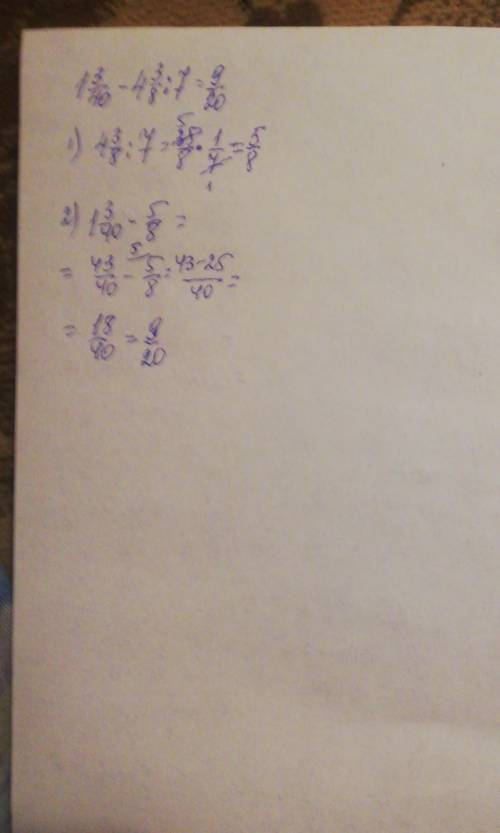 1 3/40 - 4 3/8 : 7 = 9/20
1) 4 3/8 : 7 = 35/8 · 1/7 = 5/8
2) 1 3/40 - 5/8 =
= 43/40 - 5/8 = 43-25/40 =
= 18/40 = 9/20